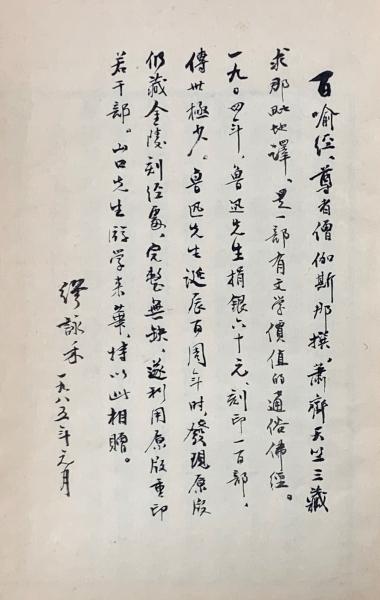 百喻经、尊者僧伽斯那撰，萧齊天竺三藏
求那毗地譯，是一部有文学價值的通俗佛經。
一九〇四年，魯迅先生捐銀六十元，刻印一百部，
傳世極少。魯迅先生誕辰百周年时，發現原版
仍藏金陵刻经處，完整無缺，遂利用原版重印
若干部。山口先生游学来華，特以此相贈。
繆詠禾
一九八五年元月